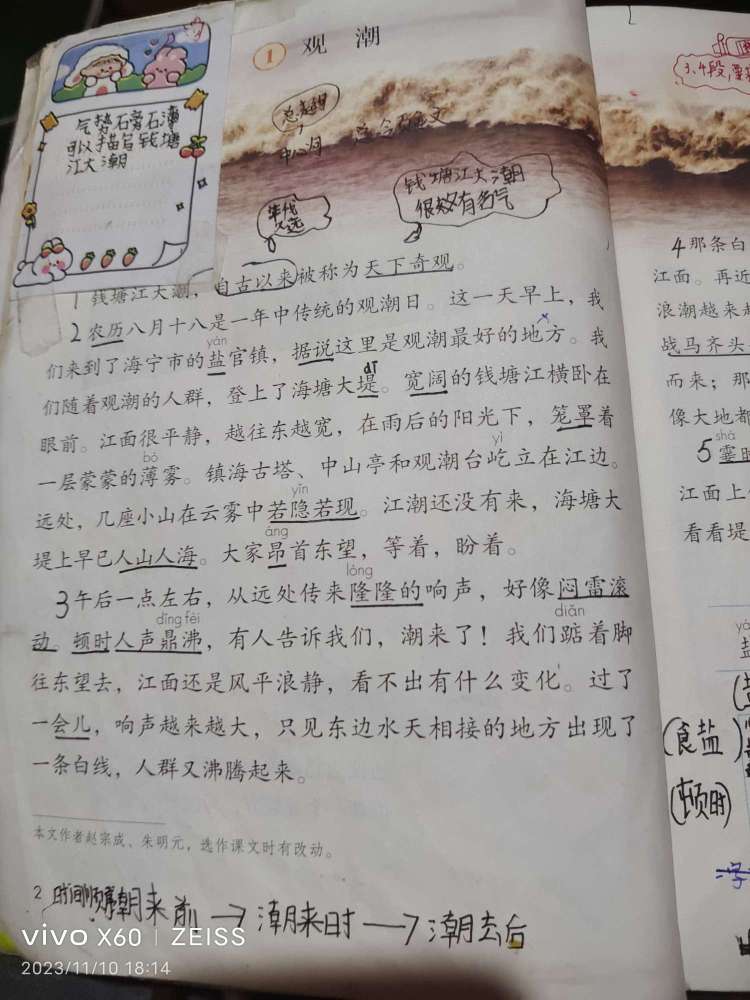 1 观 潮
气势磅礴
可以描写钱塘
江大潮
总起句
中心句
年代
久远
钱塘江大潮
很有名气
1 钱塘江大潮，自古以来被称为天下奇观。
2 农历八月十八是一年中传统的观潮日。这一天早上，我
yán
们来到了海宁市的盐官镇，据说这里是观潮最好的地方。我
dī
们随着观潮的人群，登上了海塘大堤。宽阔的钱塘江横卧在
眼前。江面很平静，越往东越宽，在雨后的阳光下，笼罩着
bó yì
一层蒙蒙的薄雾。镇海古塔、中山亭和观潮台屹立在江边。
yǐn
远处，几座小山在云雾中若隐若现。江潮还没有来，海塘大
áng
堤上早已人山人海。大家昂首东望，等着，盼着。
lóng
3 午后一点左右，从远处传来隆隆的响声，好像闷雷滚
dǐng fèi diǎn
动。顿时人声鼎沸，有人告诉我们，潮来了！我们踮着脚
往东望去，江面还是风平浪静，看不出有什么变化。过了
一会儿，响声越来越大，只见东边水天相接的地方出现了
一条白线，人群又沸腾起来。
本文作者赵宗成、朱明元，选作课文时有改动。
2
时间顺序 潮来前 → 潮来时 → 潮去后
vivo X60 | ZEISS
2023/11/10 18:14
3、4段，
4 那条白
江面。再近
浪潮越来越
战马齐头
而来；那
像大地都
shà
5 霎时
江面上
看看堤
yán
盐
(食盐)
(顿时)